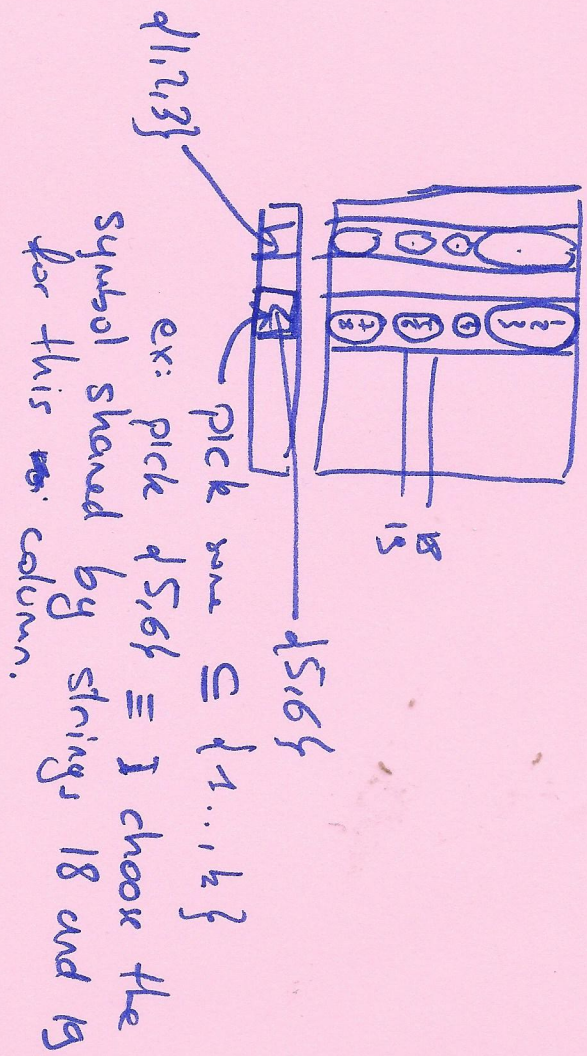 1 2 3
4
5 6
7 8
18
19
{5,6}
{1,2,3}
pick some ⊆ {1...,k}
ex: pick {5,6} ≡ I choose the
symbol shared by strings 18 and 19
for this column.